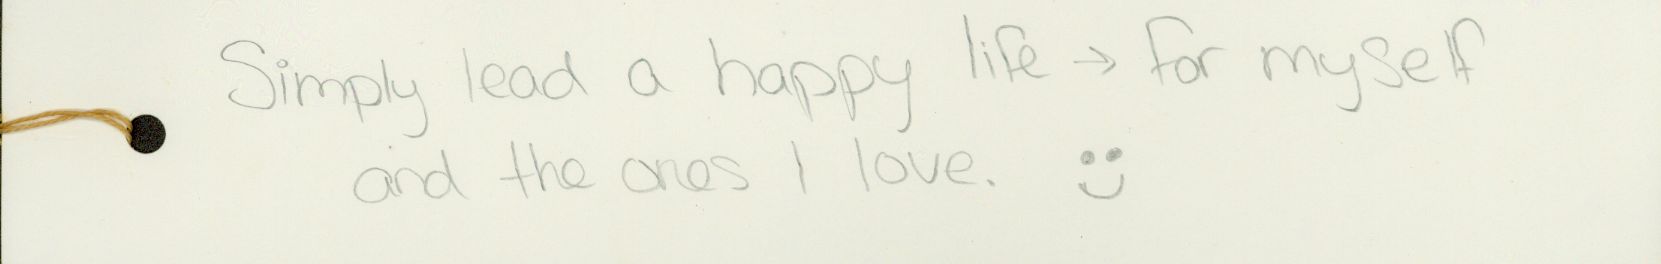 Simply lead a happy life → for myself
and the ones I love. :)